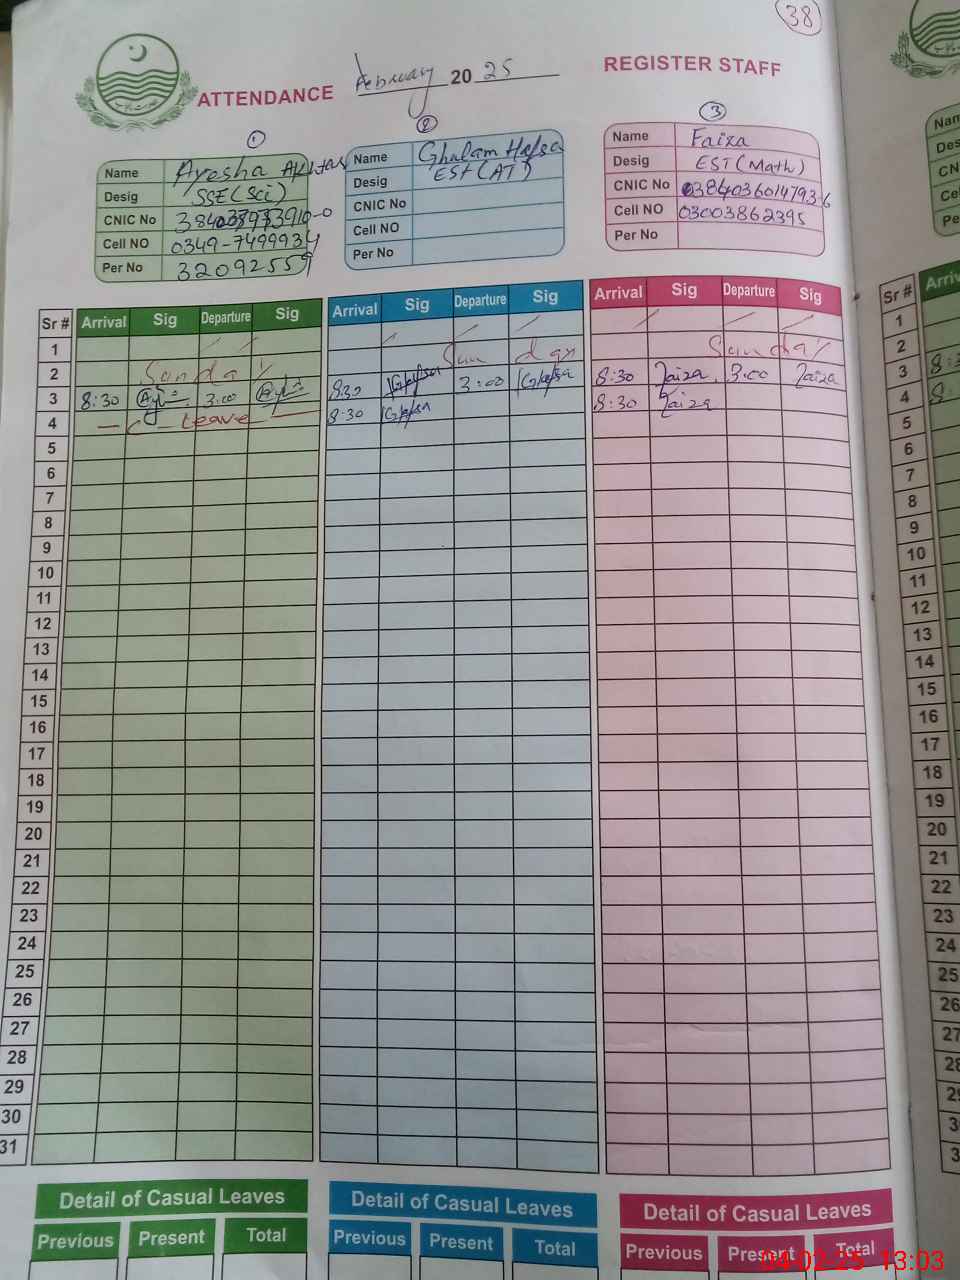 38
ATTENDANCE February 20 25 REGISTER STAFF
1
Name Ayesha Akhtar
Desig SSE (Sci)
CNIC No
Cell NO 0349-7499934
Per No 32092559
2
Name Ghulam Hafsa
Desig EST (AT)
CNIC No
Cell NO
Per No
3
Name Faiza
Desig EST (Math)
CNIC No
Cell NO 03003862395
Per No
Sr # Arrival Sig Departure Sig Arrival Sig Departure Sig Arrival Sig Departure Sig
1
2 Sunday Sunday Sunday
3 8:30 3:00 8:30 Hafsa 3:00 Hafsa 8:30 Faiza 3:00 Faiza
4 C Leave 8:30 Hafsa 8:30 Faiza
5
6
7
8
9
10
11
12
13
14
15
16
17
18
19
20
21
22
23
24
25
26
27
28
29
30
31
Detail of Casual Leaves Detail of Casual Leaves Detail of Casual Leaves
Previous Present Total Previous Present Total Previous Present Total
04-02-25 13:03
Sr # Arriv
1
2
3
4
5
6
7
8
9
10
11
12
13
14
15
16
17
18
19
20
21
22
23
24
25
26
27